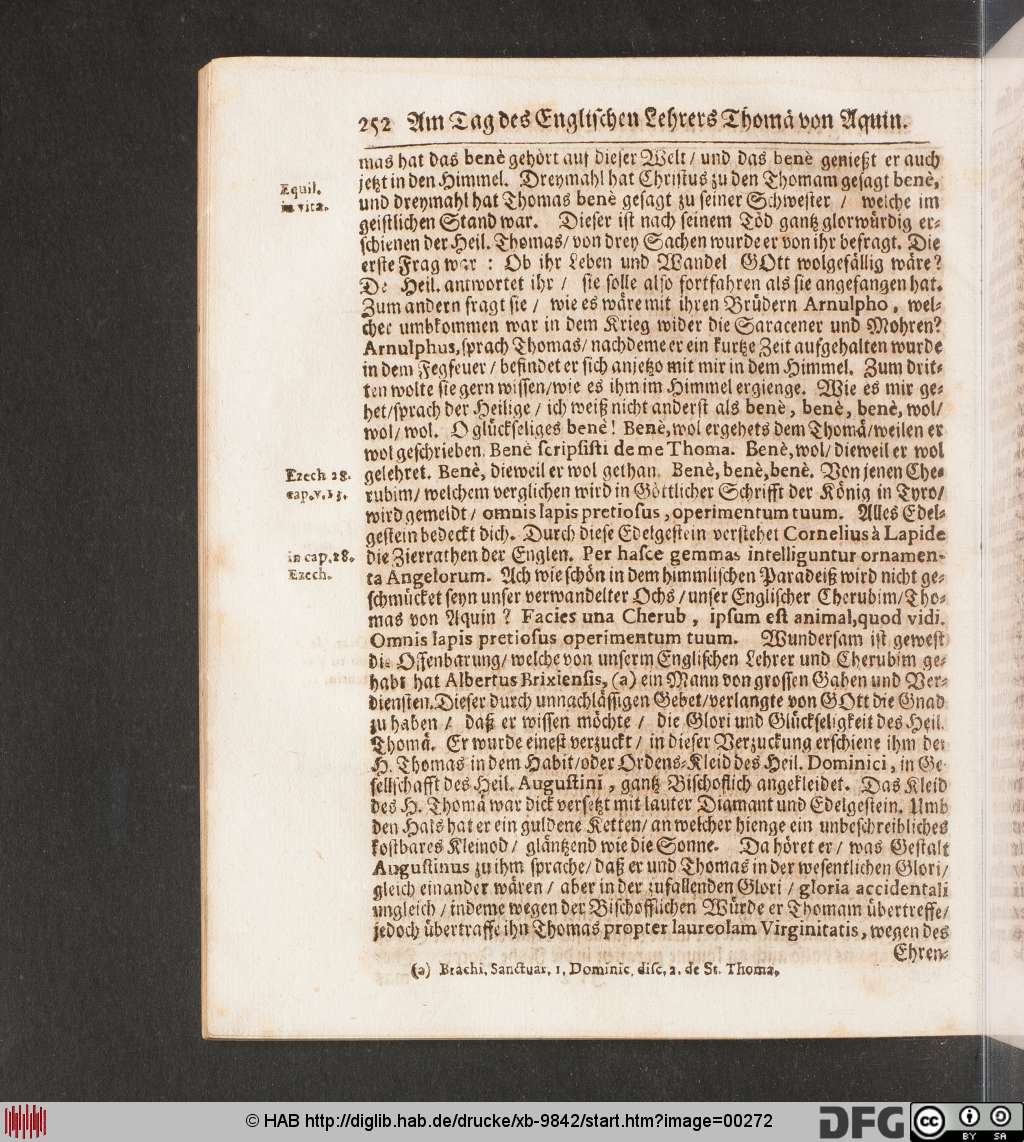 252 Am Tag des Englischen Lehrers Thomä von Aquin.
mas hat das benè gehört auf dieser Welt / und das benè genießt er auch
jetzt in den Himmel. Dreymahl hat Christus zu den Thomam gesagt benè,
und dreymahl hat Thomas benè gesagt zu seiner Schwester / welche im
geistlichen Stand war. Dieser ist nach seinem Tod gantz glorwürdig er-
schienen der Heil. Thomas / von drey Sachen wurde er von ihr befragt. Die
erste Frag war : Ob ihr Leben und Wandel GOtt wolgefällig wäre?
De Heil. antwortet ihr / sie solle also fortfahren als sie angefangen hat.
Zum andern fragt sie / wie es wäre mit ihren Brüdern Arnulpho, wel-
cher umbkommen war in dem Krieg wider die Saracener und Mohren?
Arnulphus, sprach Thomas / nachdeme er ein kurtze Zeit aufgehalten wurde
in dem Fegfeuer / befindet er sich anjetzo mit mir in dem Himmel. Zum drit-
ten wolte sie gern wissen / wie es ihm im Himmel ergienge. Wie es mir ge-
het / sprach der Heilige / ich weiß nicht anderst als benè, benè, benè, wol /
wol / wol. O glückseliges benè! Benè, wol ergehets dem Thomä / weilen er
wol geschrieben. Benè scripsisti de me Thoma. Benè, wol / dieweil er wol
gelehret. Benè, dieweil er wol gethan. Benè, benè, benè. Von jenen Che-
rubim / welchem verglichen wird in Göttlicher Schrifft der König in Tyro /
wird gemeldt / omnis lapis pretiosus, operimentum tuum. Alles Edel-
gestein bedeckt dich. Durch diese Edelgestein verstehet Cornelius à Lapide
die Zierrathen der Englen. Per hasce gemmas intelliguntur ornamen-
ta Angelorum. Ach wie schön in dem himmlischen Paradeiß wird nicht ge-
schmücket seyn unser verwandelter Ochs / unser Englischer Cherubim / Tho-
mas von Aquin? Facies una Cherub, ipsum est animal, quod vidi.
Omnis lapis pretiosus operimentum tuum. Wundersam ist gewest
die Offenbarung / welche von unserm Englischen Lehrer und Cherubim ge-
habt hat Albertus Brixiensis, (a) ein Mann von grossen Gaben und Ver-
diensten. Dieser durch unnachlässigen Gebet / verlangte von GOtt die Gnad
zu haben / daß er wissen möchte / die Glori und Glückseligkeit des Heil.
Thomä. Er wurde einest verzuckt / in dieser Verzuckung erschiene ihm der
H. Thomas in dem Habit / oder Ordens-Kleid des Heil. Dominici, in Ge-
sellschafft des Heil. Augustini, gantz Bischoflich angekleidet. Das Kleid
des H. Thomä war dick versetzt mit lauter Diamant und Edelgestein. Umb
den Hals hat er ein guldene Ketten / an welcher hienge ein unbeschreibliches
kostbares Kleinod / gläntzend wie die Sonne. Da höret er / was Gestalt
Augustinus zu ihm sprache / daß er und Thomas in der wesentlichen Glori /
gleich einander wären / aber in der zufallenden Glori / gloria accidentali
ungleich / indeme wegen der Bischofflichen Würde er Thomam übertreffe /
jedoch übertraffe ihn Thomas propter laureolam Virginitatis, wegen des
Ehren-
(a) Brachi. Sanctuar. 1. Dominic. disc. 2. de St. Thoma.
Equil.
in vita.
Ezech 28.
cap. v. 13.
in cap. 28.
Ezech.
© HAB http://diglib.hab.de/drucke/xb-9842/start.htm?image=00272
DFG
cc BY SA